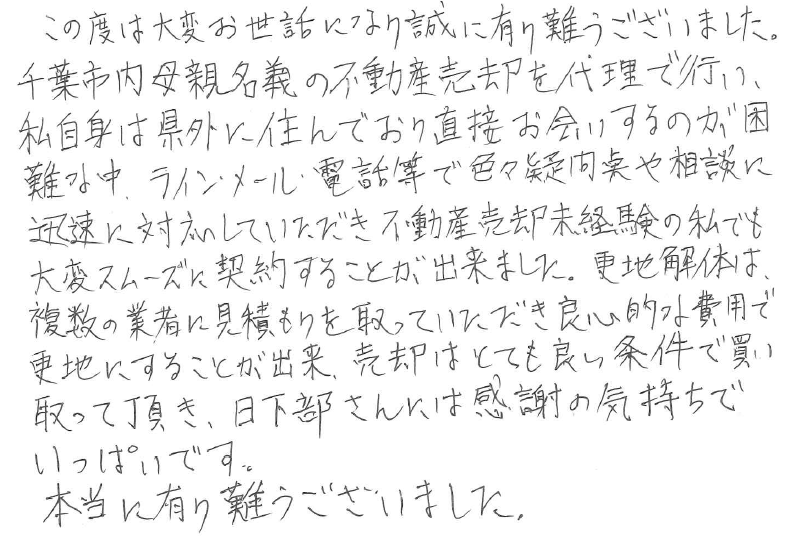 この度は大変お世話になり誠に有り難うございました。
千葉市内母親名義の不動産売却を代理で行い、
私自身は県外に住んでおり直接お会いするのが困
難な中、ライン・メール・電話等で色々疑問点や相談に
迅速に対応していただき不動産売却未経験の私でも
大変スムーズに契約することが出来ました。更地解体は、
複数の業者に見積もりを取っていただき良心的な費用で
更地にすることが出来、売却はとても良い条件で買い
取って頂き、日下部さんには感謝の気持ちで
いっぱいです。
本当に有り難うございました。